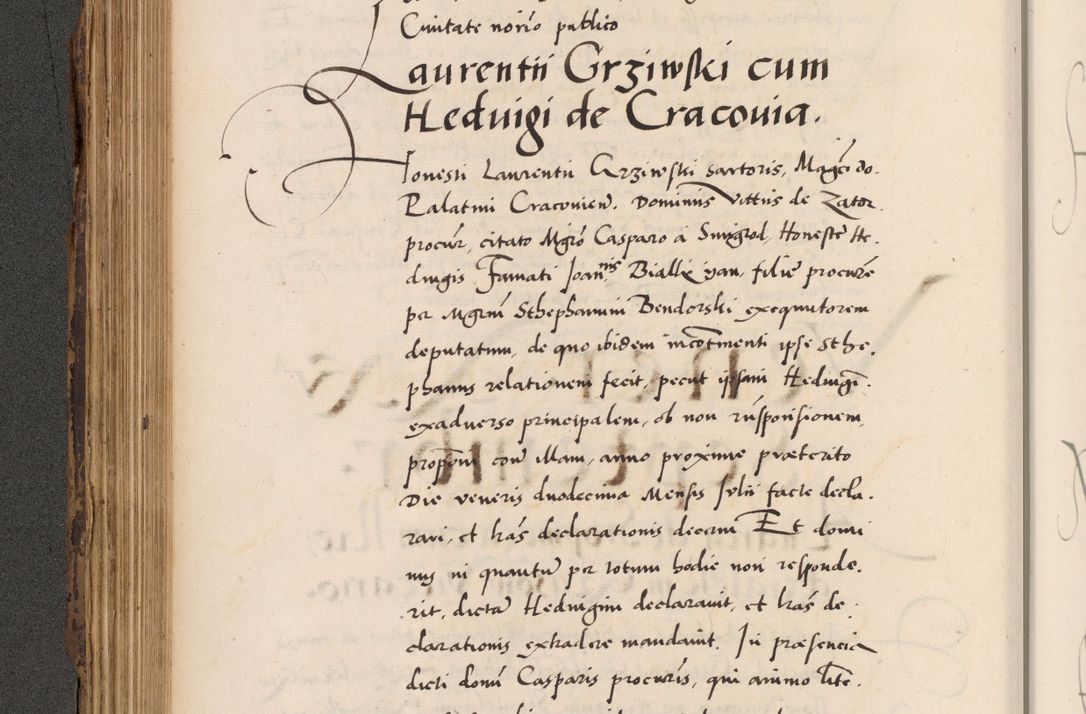 Ciuitate norio publico
Laurentii Grziwski cum
Heduigi de Cracouia.
Honesti Laurentii Grziwski sartoris, Magci do.
Palatini Cracouien. Dominus Vittus de Zator.
procur, citato Mgro Casparo a Smigrod, Honeste He.
duigis Famati Joannis, Bialli filie procure
per Mgrm Sthephanum Bendorski exequutorem
deputatum, de quo ibidem incotinenti ipse Sthe.
phanus relationem fecit, pecut ipsam Heduigi.
exaduerso principalem, ob non rusponsionem,
proponi con illam, anno proxime præterito
Die veneris duodecima Mensis Julii facte decla.
rari, et lras declarationis decerni Et domi
nus ni quantu per totum hodie non responde.
rit, dicta Heduigim declarauit, et lras de
clarationis extradere mandauit. In præsencia
dicti domi Casparis procuris, qui animo lite.